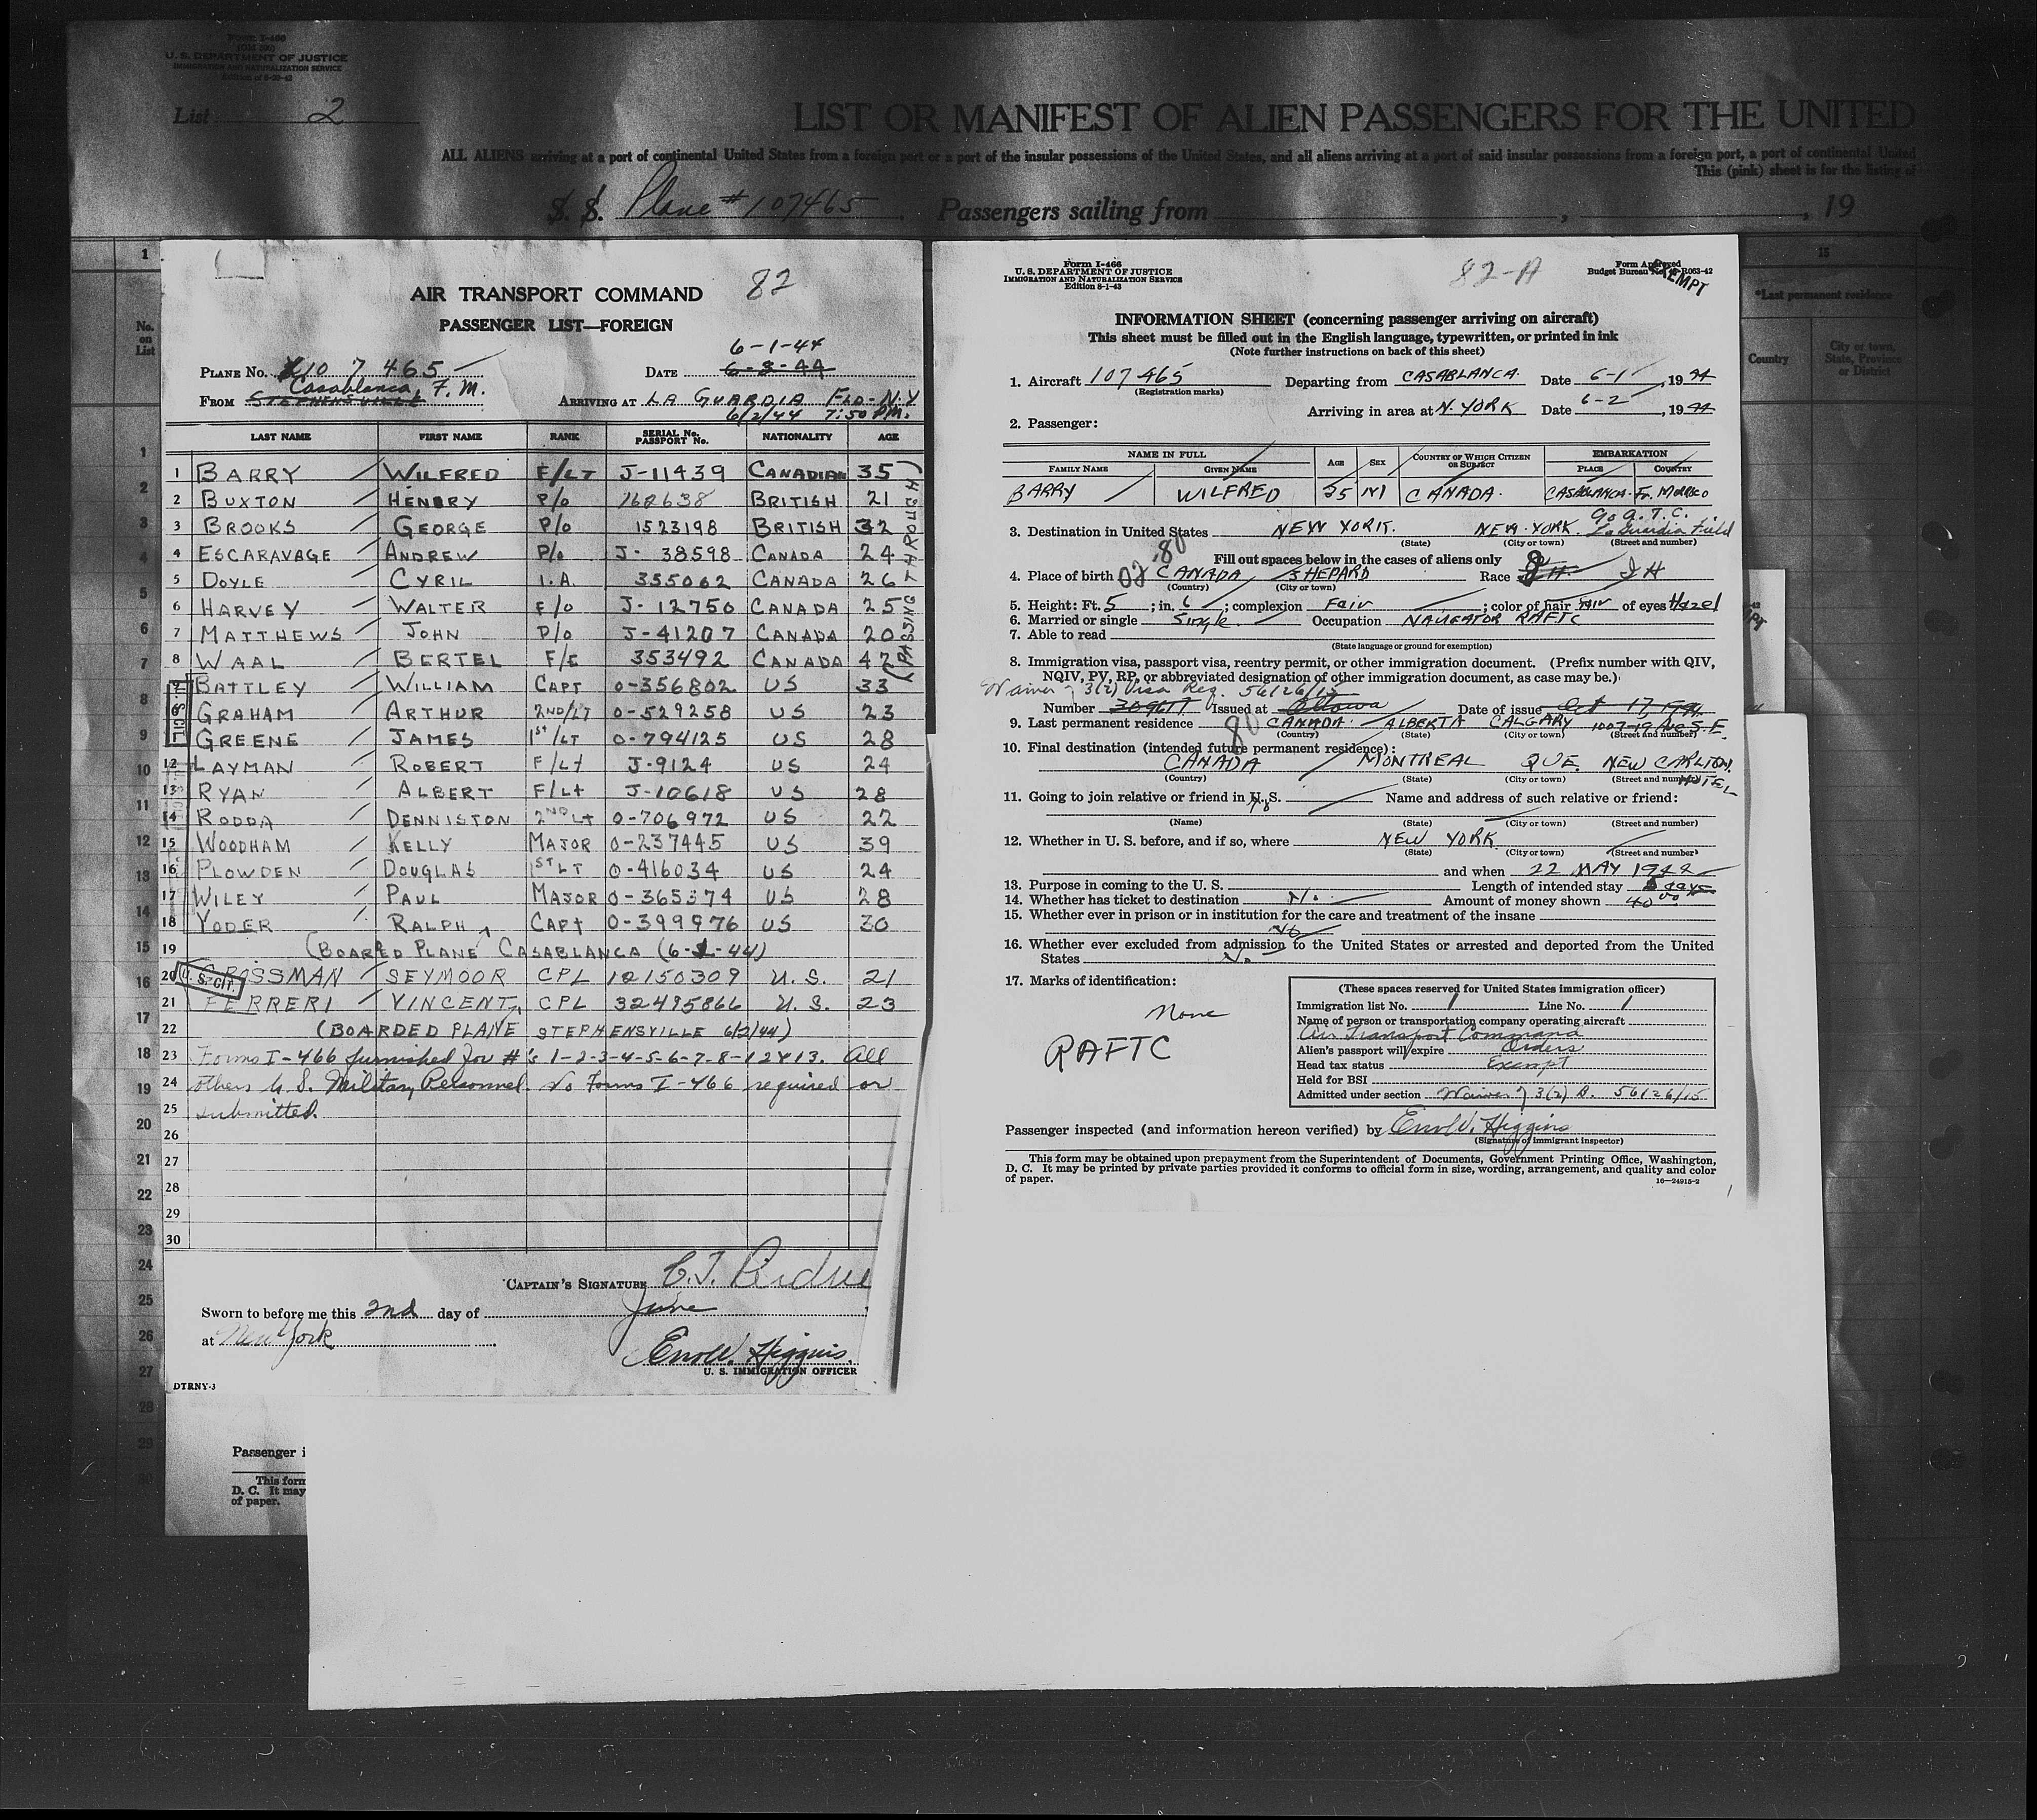 Form I-466
U. S. DEPARTMENT OF JUSTICE
IMMIGRATION AND NATURALIZATION SERVICE
List 2
LIST OR MANIFEST OF ALIEN PASSENGERS FOR THE UNITED
ALL ALIENS arriving at a port of continental United States from a foreign port or a port of the insular possessions of the United States, and all aliens arriving at a port of said insular possessions from a foreign port, a port of continental United
This (pink) sheet is for the listing of
S. S. Plane # 107465 Passengers sailing from , , 19
82
AIR TRANSPORT COMMAND
PASSENGER LIST—FOREIGN
6-1-44
PLANE No. 10 7 465 DATE
Casablanca, F. M.
FROM STEPHENSVILLE ARRIVING AT LA GUARDIA FLD-N.Y
6/2/44 7:50 P.M.
LAST NAME FIRST NAME RANK SERIAL No. PASSPORT No. NATIONALITY AGE
1 BARRY WILFRED F/LT J-11439 CANADIAN 35
2 BUXTON HENBRY P/O 162638 BRITISH 21
3 BROOKS GEORGE P/O 1523198 BRITISH 32
4 ESCARAVAGE ANDREW P/O J- 38598 CANADA 24
5 DOYLE CYRIL I.A. 355062 CANADA 26
6 HARVEY WALTER F/O J- 12750 CANADA 25
7 MATTHEWS JOHN P/O J-41207 CANADA 20
8 WAAL BERTEL F/E 353492 CANADA 42
PASSING THROUGH
BATTLEY WILLIAM CAPT O-356802 US 33
GRAHAM ARTHUR 2ND/LT O-529258 US 23
GREENE JAMES 1ST/LT O-794125 US 28
12 LAYMAN ROBERT F/Lt J-9124 US 24
13 RYAN ALBERT F/Lt J-10618 US 28
14 RODDA DENNISTON 2ND LT O-706972 US 22
15 WOODHAM KELLY MAJOR O-237445 US 39
16 PLOWDEN DOUGLAS 1ST LT O-416034 US 24
17 WILEY PAUL MAJOR O-365374 US 28
18 YODER RALPH CAPT O-399976 US 30
19 (BOARED PLANE CASABLANCA (6-1-44)
20 U. S. CIT. GROSSMAN SEYMOOR CPL 12150309 U. S. 21
21 FERRERI VINCENT CPL 32495866 U. S. 23
22 (BOARDED PLANE STEPHENSVILLE 6/2/44)
23 Forms I-466 furnished for #'s 1-2-3-4-5-6-7-8-12 & 13. All
24 others U. S. Military Personnel. No Forms I-466 required or
25 submitted.
26
27
28
29
30
CAPTAIN'S SIGNATURE
Sworn to before me this 2nd day of June
at New York
Errol W. Higgins
U. S. IMMIGRATION OFFICER
DTRNY-3
Passenger i
This form
D. C. It may
of paper.
Form I-466
U. S. DEPARTMENT OF JUSTICE
IMMIGRATION AND NATURALIZATION SERVICE
Edition 8-1-43
82-A
Form Approved
Budget Bureau No. 43-R063-42
EXEMPT
INFORMATION SHEET (concerning passenger arriving on aircraft)
This sheet must be filled out in the English language, typewritten, or printed in ink
(Note further instructions on back of this sheet)
1. Aircraft 107465 Departing from CASABLANCA Date 6-1, 1944
(Registration marks)
Arriving in area at N. YORK Date 6-2, 1944
2. Passenger:
NAME IN FULL AGE SEX COUNTRY OF WHICH CITIZEN OR SUBJECT EMBARKATION
FAMILY NAME GIVEN NAME PLACE COUNTRY
BARRY WILFRED 35 M CANADA. CASABLANCA. Fr. Morocco
3. Destination in United States NEW YORK. NEW YORK. c/o A. T. C. La Guardia Field
(State) (City or town) (Street and number)
Fill out spaces below in the cases of aliens only
4. Place of birth CANADA SHEPARD Race
(Country) (City or town)
5. Height: Ft. 5; in. 6; complexion Fair; color of hair Fair of eyes Hazel
6. Married or single Single. Occupation NAVIGATOR RAFTC
7. Able to read
(State language or ground for exemption)
8. Immigration visa, passport visa, reentry permit, or other immigration document. (Prefix number with QIV,
NQIV, PV, RP, or abbreviated designation of other immigration document, as case may be.)
Waiver of 3(2) Visa Req. 56126/15
Number Issued at Ottawa Date of issue
9. Last permanent residence CANADA. ALBERTA CALGARY
(Country) (State) (City or town) (Street and number)
10. Final destination (intended future permanent residence):
CANADA MONTREAL QUE. NEW CARLTON HOTEL
(Country) (State) (City or town) (Street and number)
11. Going to join relative or friend in U. S. No Name and address of such relative or friend:
(Name) (State) (City or town) (Street and number)
12. Whether in U. S. before, and if so, where NEW YORK
(State) (City or town) (Street and number)
and when 22 MAY 1944
13. Purpose in coming to the U. S. Length of intended stay days
14. Whether has ticket to destination Amount of money shown 40 00
15. Whether ever in prison or in institution for the care and treatment of the insane
No
16. Whether ever excluded from admission to the United States or arrested and deported from the United
States No
17. Marks of identification:
None
RAFTC
(These spaces reserved for United States immigration officer)
Immigration list No. 1 Line No. 1
Name of person or transportation company operating aircraft
Air Transport Command
Alien's passport will expire Orders
Head tax status Exempt
Held for BSI
Admitted under section Waiver of 3(2) 56126/15
Passenger inspected (and information hereon verified) by Errol W. Higgins
(Signature of immigrant inspector)
This form may be obtained upon prepayment from the Superintendent of Documents, Government Printing Office, Washington,
D. C. It may be printed by private parties provided it conforms to official form in size, wording, arrangement, and quality and color
of paper.
16—24915-2
15
*Last permanent residence
Country City or town, State, Province or District